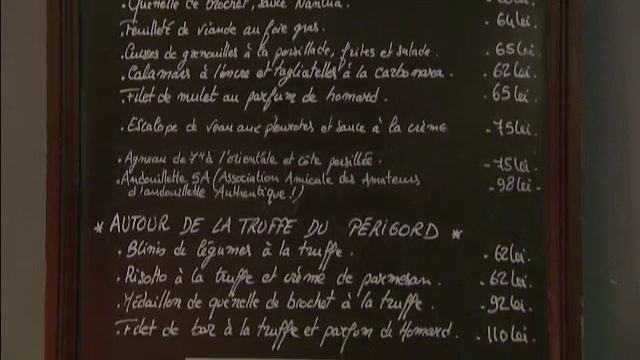 . Quenelle de brochet, sauce Nantua.
.Feuilleté de viande au foie gras. - 64 lei.
.Cuisses de grenouilles à la persillade, frites et salade. - 65 lei.
.Calamars à l'encre et tagliatelles à la carbonara. . 62 lei
.Filet de mulet au parfum de homard. . 65 lei.
. Escalope de veau aux pleurotes et sauce à la crème - 75 lei.
. Agneau de à l'orientale et côte persillée. - 75 lei
. Andouillette 5A (Association Amicale des Amateurs - 98 lei -
d'andouillette Authentique!)
* AUTOUR DE LA TRUFFE DU PÉRIGORD *
. Blinis de légumes à la truffe. . 62 lei.
. Risotto à la truffe et crème de parmesan. . 62 lei.
. Médaillon de quenelle de brochet à la truffe. . 92 lei.
. Filet de bar à la truffe et parfum de Homard. . 110 lei.